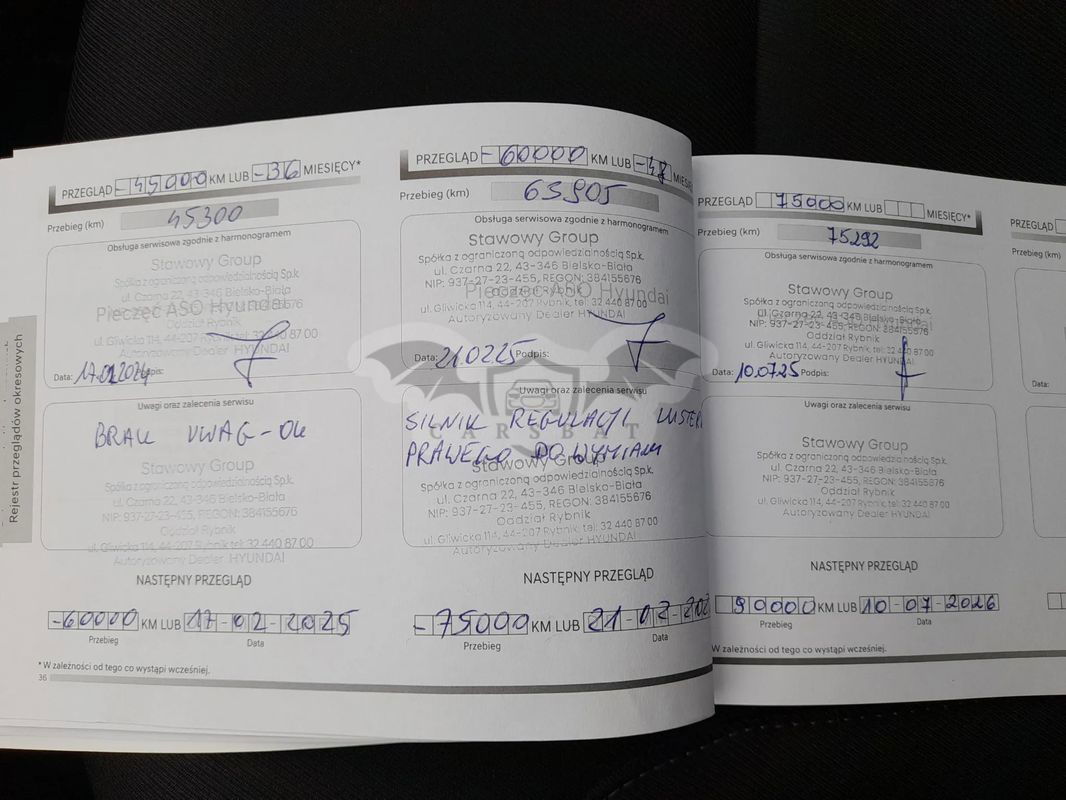 Rejestr przeglądów okresowych
PRZEGLĄD -45000 KM LUB -36 MIESIĘCY*
Przebieg (km) 45300
Obsługa serwisowa zgodnie z harmonogramem
Stawowy Group
Spółka z ograniczoną odpowiedzialnością Sp.k.
ul. Czarna 22, 43-346 Bielsko-Biała
Pieczęć ASO Hyundai
Oddział Rybnik
ul. Gliwicka 114, 44-207 Rybnik tel: 32 440 87 00
Autoryzowany Dealer HYUNDAI
Data: Podpis:
Uwagi oraz zalecenia serwisu
BRAK UWAG - OK
Stawowy Group
Spółka z ograniczoną odpowiedzialnością Sp.k.
ul. Czarna 22, 43-346 Bielsko-Biała
NIP: 937-27-23-455, REGON: 384155676
Oddział Rybnik
ul. Gliwicka 114, 44-207 Rybnik tel: 32 440 87 00
Autoryzowany Dealer HYUNDAI
NASTĘPNY PRZEGLĄD
-60000 KM LUB 17-02-2025
Przebieg Data
* W zależności od tego co wystąpi wcześniej.
36
PRZEGLĄD -60000 KM LUB -48
Przebieg (km) 63905
Obsługa serwisowa zgodnie z harmonogramem
Stawowy Group
Spółka z ograniczoną odpowiedzialnością Sp.k.
ul. Czarna 22, 43-346 Bielsko-Biała
NIP: 937-27-23-455, REGON: 384155676
Pieczęć ASO Hyundai
Oddział Rybnik
ul. Gliwicka 114, 44-207 Rybnik, tel: 32 440 87 00
Autoryzowany Dealer HYUNDAI
Data: 210225 Podpis:
Uwagi oraz zalecenia serwisu
SILNIK REGULACJI
PRAWEGO DO WYMIANY
CARSBAT
Stawowy Group
Spółka z ograniczoną odpowiedzialnością Sp.k.
ul. Czarna 22, 43-346 Bielsko-Biała
NIP: 937-27-23-455, REGON: 384155676
Oddział Rybnik
ul. Gliwicka 114, 44-207 Rybnik, tel: 32 440 87 00
Autoryzowany Dealer HYUNDAI
NASTĘPNY PRZEGLĄD
-75000 KM LUB 21-02-202
Przebieg Data
PRZEGLĄD 75000 KM LUB MIESIĘCY*
Przebieg (km) 75292
Obsługa serwisowa zgodnie z harmonogramem
Stawowy Group
Spółka z ograniczoną odpowiedzialnością Sp.k.
ul. Czarna 22, 43-346 Bielsko-Biała
NIP: 937-27-23-455, REGON: 384155676
Oddział Rybnik
ul. Gliwicka 114, 44-207 Rybnik, tel: 32 440 87 00
Autoryzowany Dealer HYUNDAI
Data: 10.07.25 Podpis:
Uwagi oraz zalecenia serwisu
Stawowy Group
Spółka z ograniczoną odpowiedzialnością Sp.k.
ul. Czarna 22, 43-346 Bielsko-Biała
NIP: 937-27-23-455, REGON: 384155676
Oddział Rybnik
ul. Gliwicka 114, 44-207 Rybnik, tel: 32 440 87 00
Autoryzowany Dealer HYUNDAI
NASTĘPNY PRZEGLĄD
90000 KM LUB 10-07-2026
Przebieg Data
W zależności od tego co wystąpi wcześniej.
PRZEGLĄD
Przebieg (km)
Data: